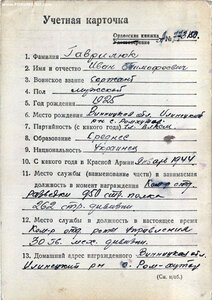 Учетная карточка
Орденская книжка
1. Фамилия Гаврилюк
2. Имя и отчество Иван Тимофеевич
3. Воинское звание Сержант
4. Пол мужской
5. Год рождения 1925
6. Место рождения Винницкой обл. Ильинецк
7. Партийность (с какого года) Чл. ВЛКСМ
8. Образование Среднее
9. Национальность Украинец
10. С какого года в Красной Армии Январь 1944
11. Место службы (наименование части) и занимаемая
должность в момент награждения Ком. отд.
разведки 950 стр. полка
262 стр. дивизии
12. Место службы и должность в настоящее время
Ком-р отд. роты Управления
30 Гв. мех. дивизии.
13. Домашний адрес награжденного Винницкая обл
Ильинецкий р-н с.
(См. н/об.)